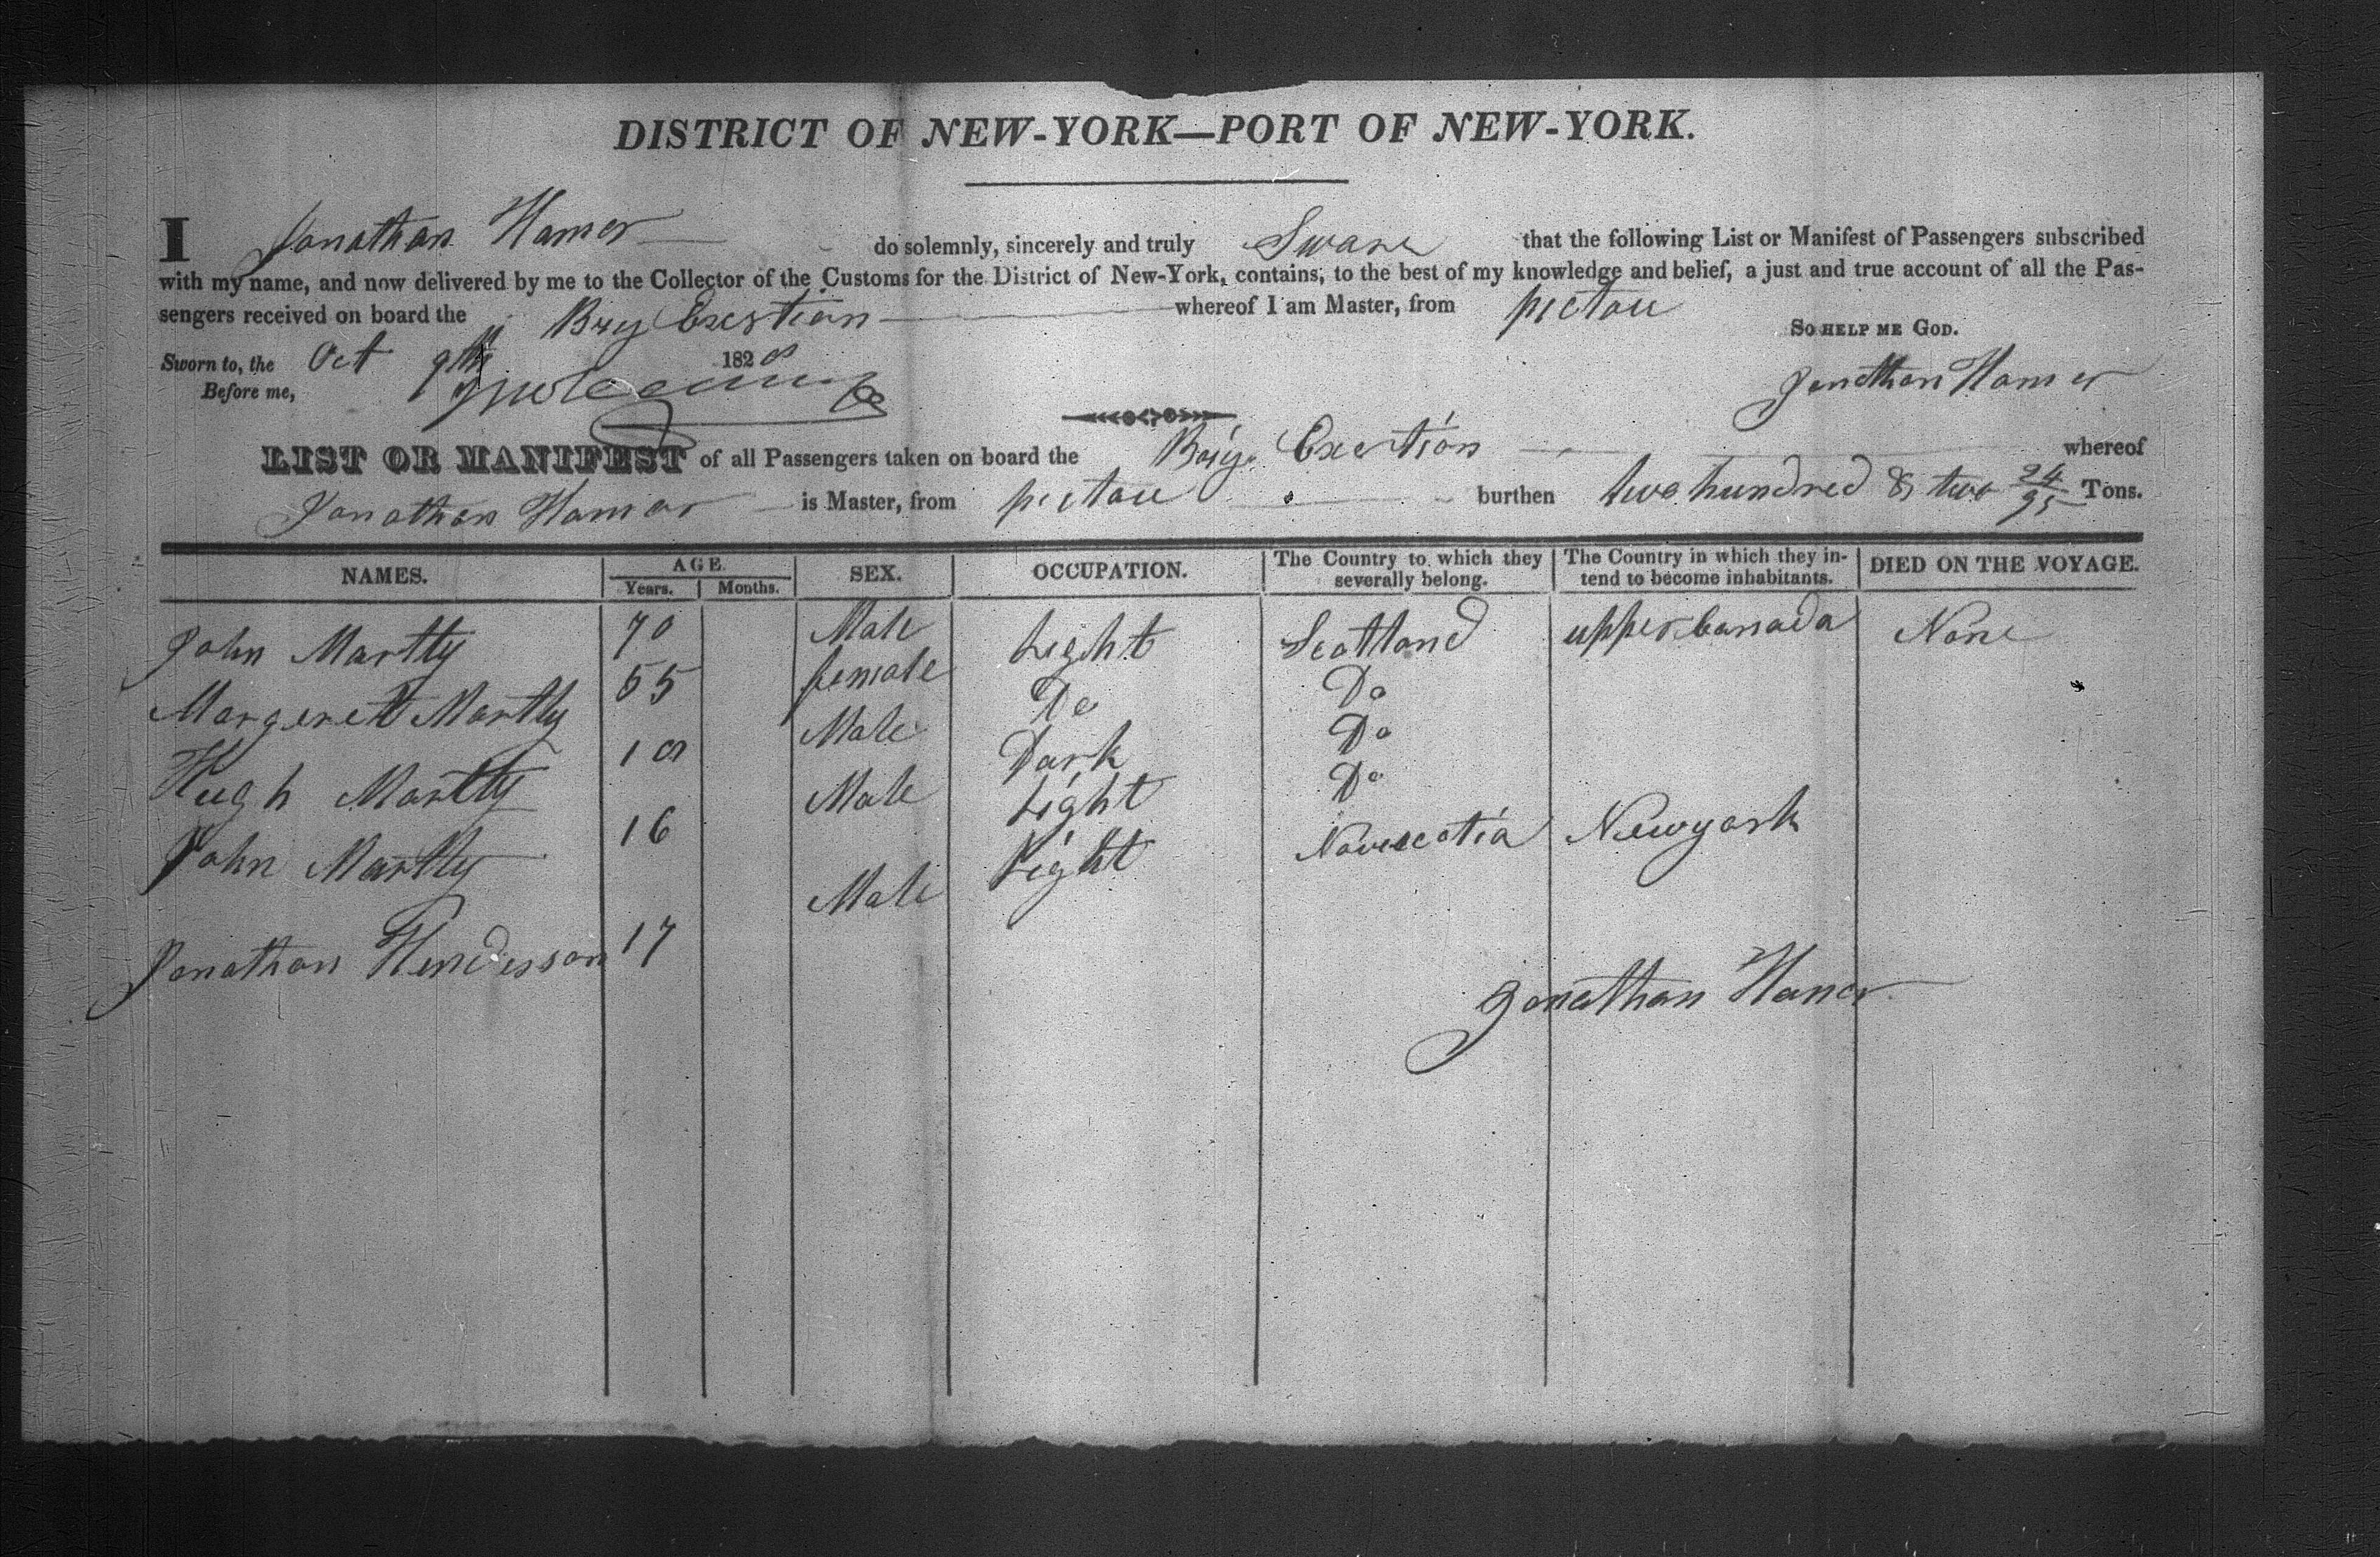 DISTRICT OF NEW-YORK—PORT OF NEW-YORK.
I Jonathan Hamor do solemnly, sincerely and truly Sware that the following List or Manifest of Passengers subscribed
with my name, and now delivered by me to the Collector of the Customs for the District of New-York, contains, to the best of my knowledge and belief, a just and true account of all the Pas-
sengers received on board the Brig Exertion whereof I am Master, from pictou
SO HELP ME GOD.
Sworn to, the Oct 9th 1828
Before me,
Jonathan Hamor
LIST OR MANIFEST of all Passengers taken on board the Brig Exertion whereof
Jonathan Hamor is Master, from pictou burthen two hundred & two 24/95 Tons.
NAMES. AGE. Years. Months. SEX. OCCUPATION. The Country to which they severally belong. The Country in which they intend to become inhabitants. DIED ON THE VOYAGE.
John Martly 70 Male Light Scotland upper Canada None
Margerett Martly 55 female Do Do
Hugh Martly Male Dark Do
John Martly 16 Male Light Do
Jonathan Henderson 17 Male Light Novescotia Newyork
Jonathan Hamor